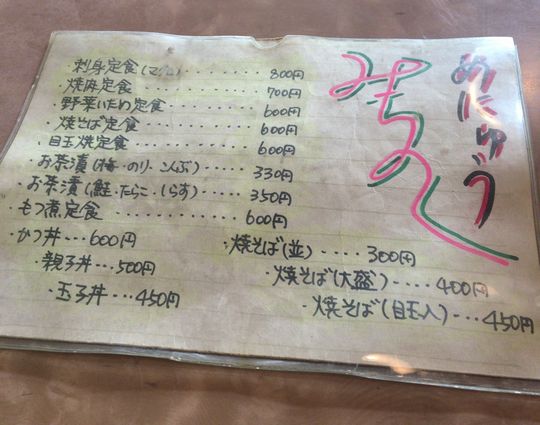 めにゅう
みちのく
・刺身定食(マグロ)・・・・・・・・800円
・焼肉定食・・・・・・・・700円
・野菜いため定食・・・・・・・・600円
・焼そば定食・・・・・・・・600円
・目玉焼定食・・・・・・・・600円
・お茶漬(梅・のり・こんぶ)・・・・・・330円
・お茶漬(鮭・たらこ・しらす)・・・・・・350円
・もつ煮定食・・・・・・・・600円
・かつ丼・・・600円
・親子丼・・・500円
・玉子丼・・・450円
・焼そば(並)・・・・300円
・焼そば(大盛)・・・・400円
・焼そば(目玉入)・・・・450円